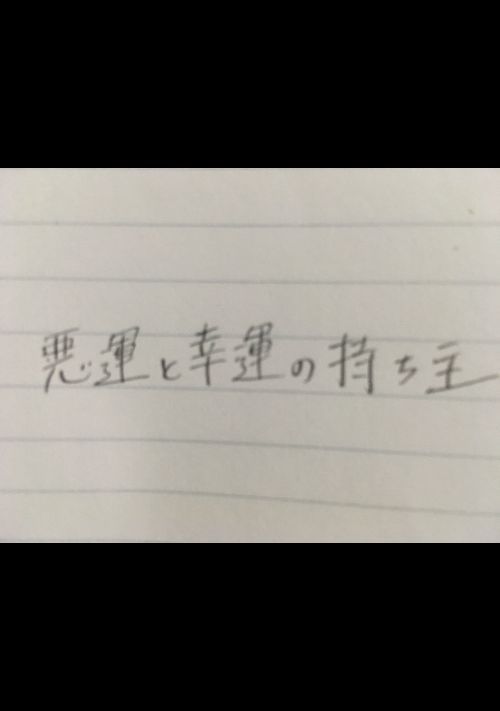 悪運と幸運の持ち主